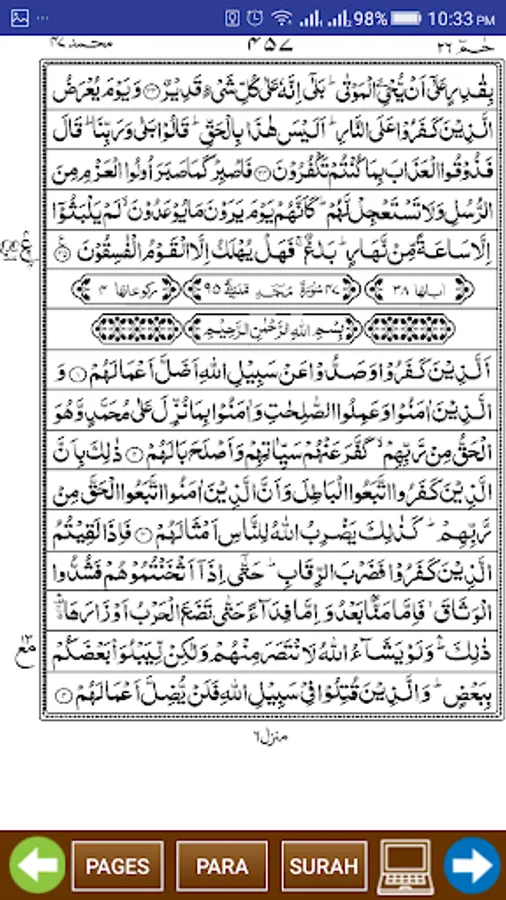 98% 10:33 PM
حٰمٓ ٢٦ ٤٥٧ محمد ٤٧
بِقٰدِرٍ عَلٰٓى اَنْ يُّحْيِۦَ الْمَوْتٰى ؕ بَلٰٓى اِنَّهٗ عَلٰى كُلِّ شَىْءٍ قَدِيْرٌ ﴿۳۳﴾ وَيَوْمَ يُعْرَضُ
الَّذِيْنَ كَفَرُوْا عَلَى النَّارِ ؕ اَلَيْسَ هٰذَا بِالْحَقِّ ؕ قَالُوْا بَلٰى وَرَبِّنَا ؕ قَالَ
فَذُوْقُوا الْعَذَابَ بِمَا كُنْتُمْ تَكْفُرُوْنَ ﴿۳۴﴾ فَاصْبِرْ كَمَا صَبَرَ اُولُوا الْعَزْمِ مِنَ
الرُّسُلِ وَلَا تَسْتَعْجِلْ لَّهُمْ ؕ كَاَنَّهُمْ يَوْمَ يَرَوْنَ مَا يُوْعَدُوْنَ ۙ لَمْ يَلْبَثُوْۤا
اِلَّا سَاعَةً مِّنْ نَّهَارٍ ؕ بَلٰغٌ ۚ فَهَلْ يُهْلَكُ اِلَّا الْقَوْمُ الْفٰسِقُوْنَ ﴿۳۵﴾
اٰياتها ٣٨ ٤٧ سُوْرَةُ مُحَمَّدٍ مَّدَنِيَّةٌ ٩٥ ركوعاتها ٤
بِسْمِ اللهِ الرَّحْمٰنِ الرَّحِيْمِ
اَلَّذِيْنَ كَفَرُوْا وَصَدُّوْا عَنْ سَبِيْلِ اللهِ اَضَلَّ اَعْمَالَهُمْ ﴿۱﴾ وَ
الَّذِيْنَ اٰمَنُوْا وَعَمِلُوا الصّٰلِحٰتِ وَاٰمَنُوْا بِمَا نُزِّلَ عَلٰى مُحَمَّدٍ وَّهُوَ
الْحَقُّ مِنْ رَّبِّهِمْ ۙ كَفَّرَ عَنْهُمْ سَيِّاٰتِهِمْ وَاَصْلَحَ بَالَهُمْ ﴿۲﴾ ذٰلِكَ بِاَنَّ
الَّذِيْنَ كَفَرُوا اتَّبَعُوا الْبَاطِلَ وَاَنَّ الَّذِيْنَ اٰمَنُوا اتَّبَعُوا الْحَقَّ مِنْ
رَّبِّهِمْ ؕ كَذٰلِكَ يَضْرِبُ اللهُ لِلنَّاسِ اَمْثَالَهُمْ ﴿۳﴾ فَاِذَا لَقِيْتُمُ
الَّذِيْنَ كَفَرُوْا فَضَرْبَ الرِّقَابِ ؕ حَتّٰٓى اِذَاۤ اَثْخَنْتُمُوْهُمْ فَشُدُّوا
الْوَثَاقَ ۙ فَاِمَّا مَنًّۢا بَعْدُ وَاِمَّا فِدَآءً حَتّٰى تَضَعَ الْحَرْبُ اَوْزَارَهَا ۛ۬
ذٰلِكَ ۛؕ وَلَوْ يَشَآءُ اللهُ لَانْتَصَرَ مِنْهُمْ وَلٰكِنْ لِّيَبْلُوَا۠ بَعْضَكُمْ
بِبَعْضٍ ؕ وَالَّذِيْنَ قُتِلُوْا فِىْ سَبِيْلِ اللهِ فَلَنْ يُّضِلَّ اَعْمَالَهُمْ ﴿۴﴾
منزل ٦
PAGES PARA SURAH